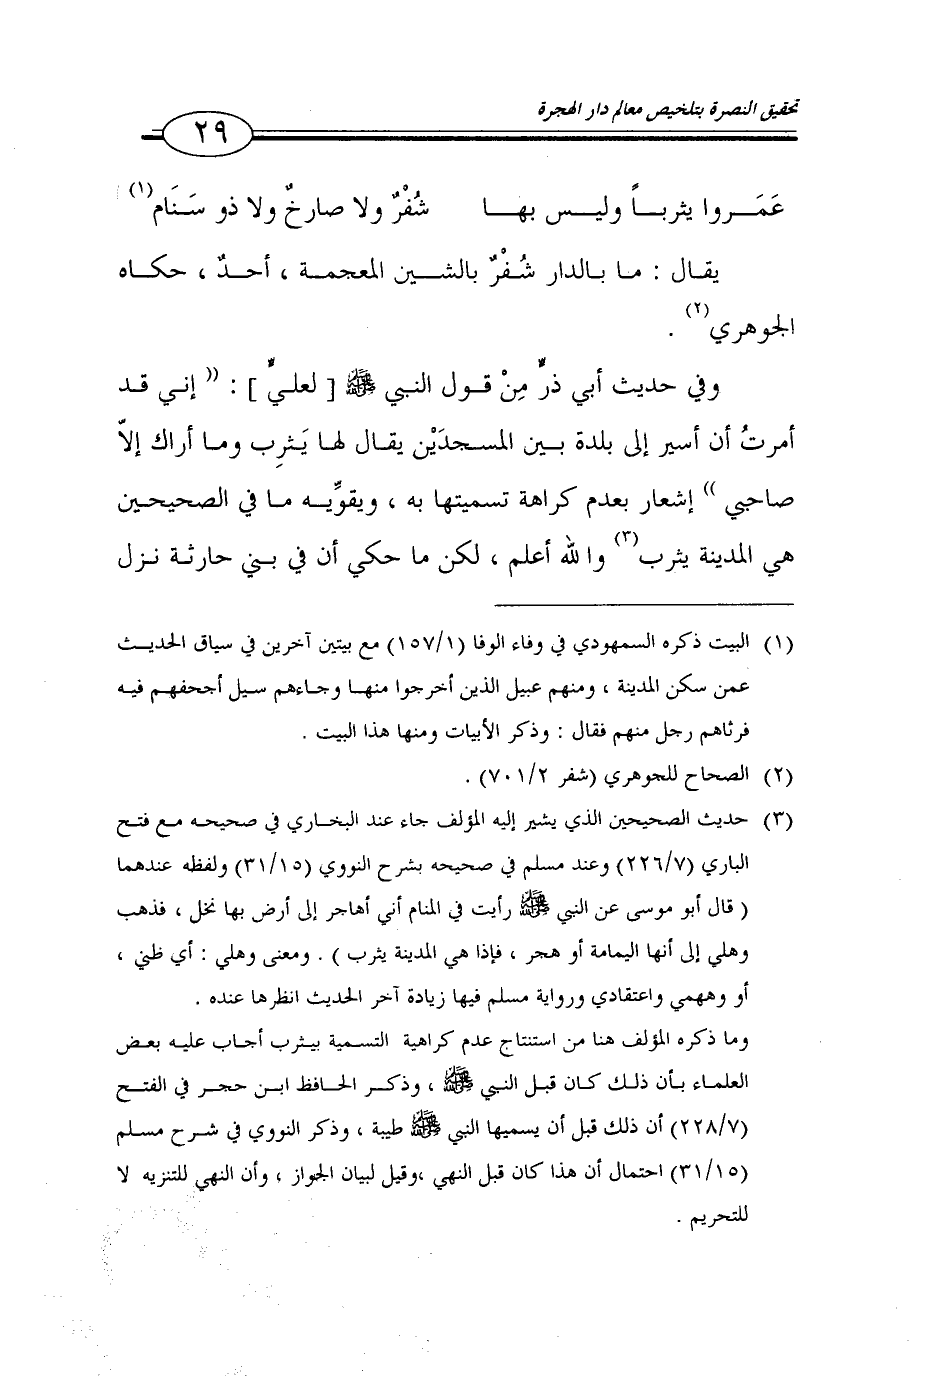 تحقيق النصرة بتلخيص معالم دار الهجرة
٢٩
عَمَـــروا يثربـــاً وليـــس بهـــا شُفْرٌ ولا صارخٌ ولا ذو سَنَام(١)
يقـال : مـا بـالدار شُفْرٌ بالشـين المعجمـة ، أحـدٌ ، حكـاه
الجوهري(٢) .
وفي حديث أبي ذرٍّ مِنْ قـول النبي ﷺ [ لعليٍّ ] : (( إنـي قـد
أمرتُ أن أسير إلى بلدة بـين المسـجدَيْن يقـال لهـا يَـثرِب ومـا أراك إلاّ
صاحبي )) إشعار بعدم كراهة تسميتها به ، ويقوِّيـه مـا في الصحيحـين
هي المدينة يثرب(٣) والله أعلم ، لكن ما حكي أن في بـني حارثـة نـزل
(١) البيت ذكره السمهودي في وفاء الوفا (١٥٧/١) مع بيتين آخرين في سياق الحديـث
عمن سكن المدينة ، ومنهم عبيل الذين أخرجوا منهـا وجـاءهم سـيل أجحفهـم فيـه
فرثاهم رجل منهم فقال : وذكر الأبيات ومنها هذا البيت .
(٢) الصحاح للجوهري (شفر ٧٠١/٢) .
(٣) حديث الصحيحين الذي يشير إليه المؤلف جاء عند البخـاري في صحيحـه مـع فتـح
الباري (٢٢٦/٧) وعند مسلم في صحيحه بشرح النووي (٣١/١٥) ولفظه عندهمـا
( قال أبو موسى عن النبي ﷺ رأيت في المنام أني أهاجر إلى أرض بها نخل ، فذهب
وهلي إلى أنها اليمامة أو هجر ، فإذا هي المدينة يثرب ) . ومعنى وهلي : أي ظني ،
أو وههمي واعتقادي ورواية مسلم فيها زيادة آخر الحديث انظرها عنده .
وما ذكره المؤلف هنا من استنتاج عدم كراهية التسمية بيثرب أجاب عليـه بعـض
العلمـاء بـأن ذلـك كـان قبـل النبي ﷺ ، وذكـر الحـافظ ابـن حجـر في الفتـح
(٢٢٨/٧) أن ذلك قبل أن يسميها النبي ﷺ طيبة ، وذكر النووي في شـرح مسـلم
(٣١/١٥) احتمال أن هذا كان قبل النهي ،وقيل لبيان الجواز ، وأن النهي للتنزيه لا
للتحريم .